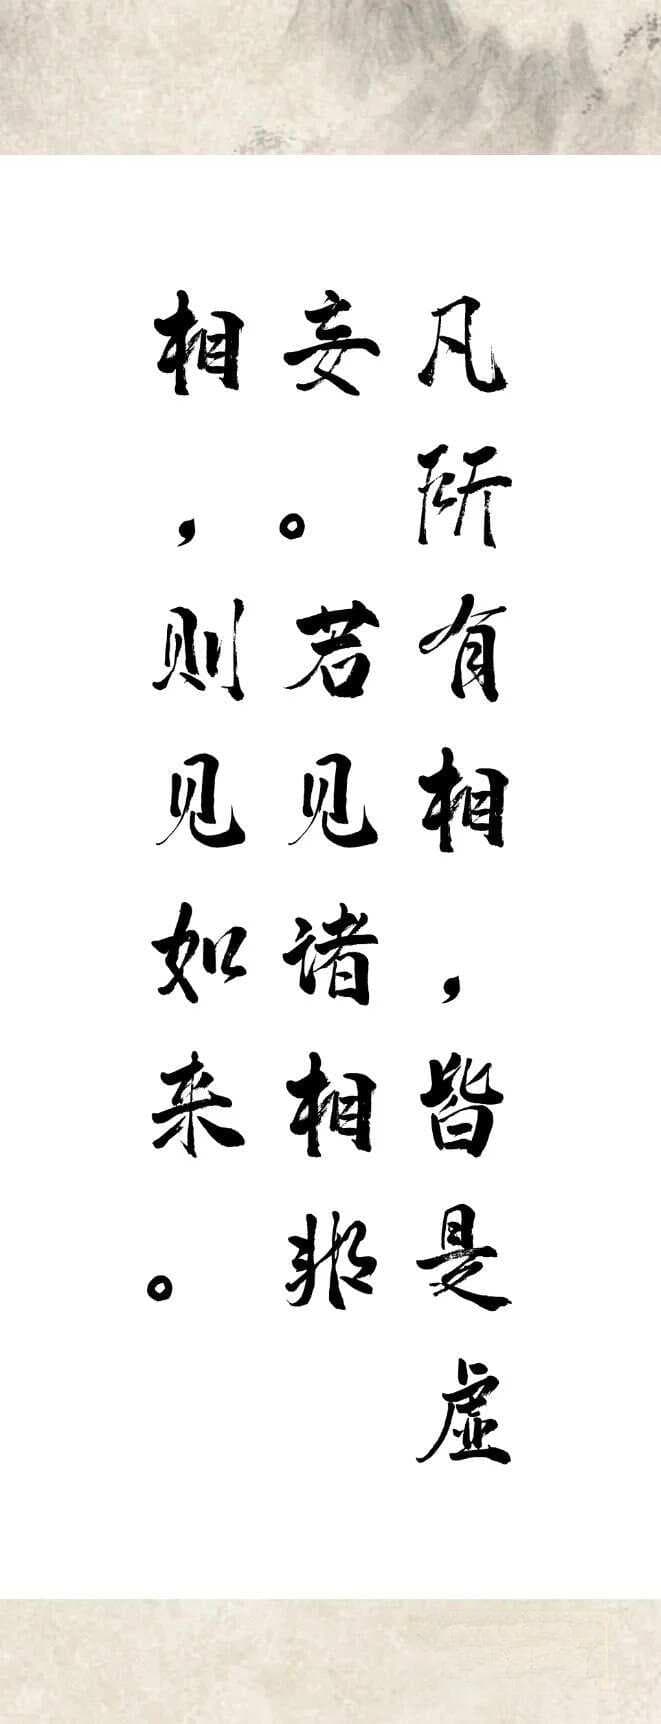 凡所有相，皆是虚
妄。若见诸相非
相，则见如来。